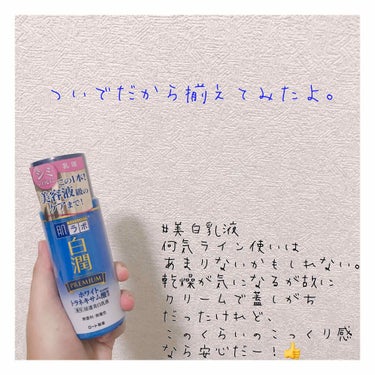 ついでだから揃えてみたよ。
シミ
乳液
この1本!
美容液級の
ケアまで!
肌ラボ
白潤
PREMIUM
ホワイト
トラネキサム酸
薬用浸透美白乳液
ロート製薬
#美白乳液
何気ライン使いは
あまりないかもしれない。
乾燥が気になるが故に
クリームで蓋しがち
だったけれど、
このくらいのこっくり感
なら安心だー!👍